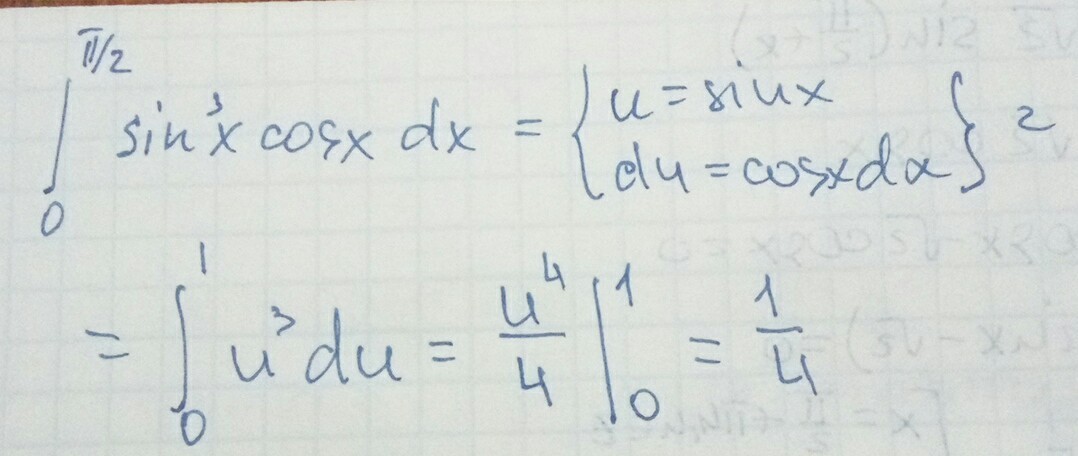 ∫₀^{π/2} sin³x cosx dx = { u = sinx
du = cosxdx } =
= ∫₀¹ u³ du = u⁴/4 |₀¹ = 1/4